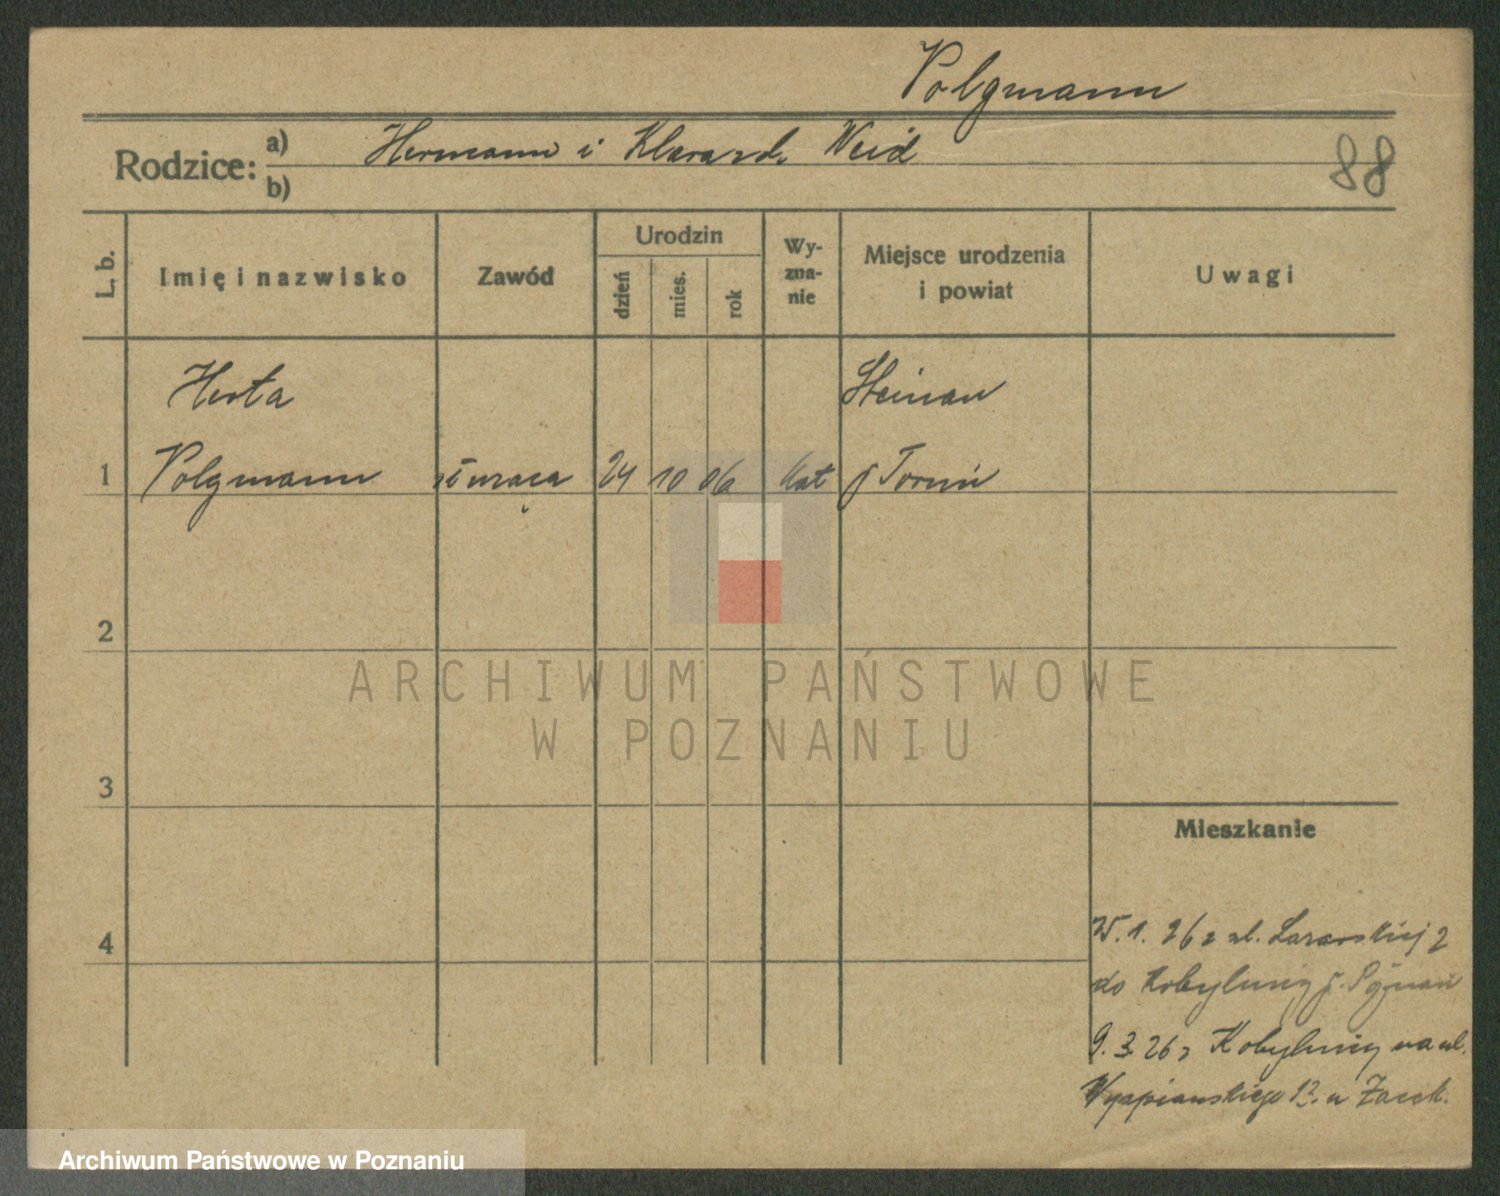 Polgmann
Rodzice: a) Hermann i Klara zd. Weid
b)
88
L. b.
Imię i nazwisko
Zawód
Urodzin
dzień
mies.
rok
Wy-
zna-
nie
Miejsce urodzenia
i powiat
Uwagi
Herta
Steinau
1 Polgmann służąca 24 10 06 kat p Toruń
2
ARCHIWUM PAŃSTWOWE
W POZNANIU
3
Mieszkanie
4
1. 26 z ul. Łazarskiej
do Kobylnicy p. Poznań
9. 3. 26 z Kobylnicy na ul.
Wyspiańskiego 12. u
Archiwum Państwowe w Poznaniu